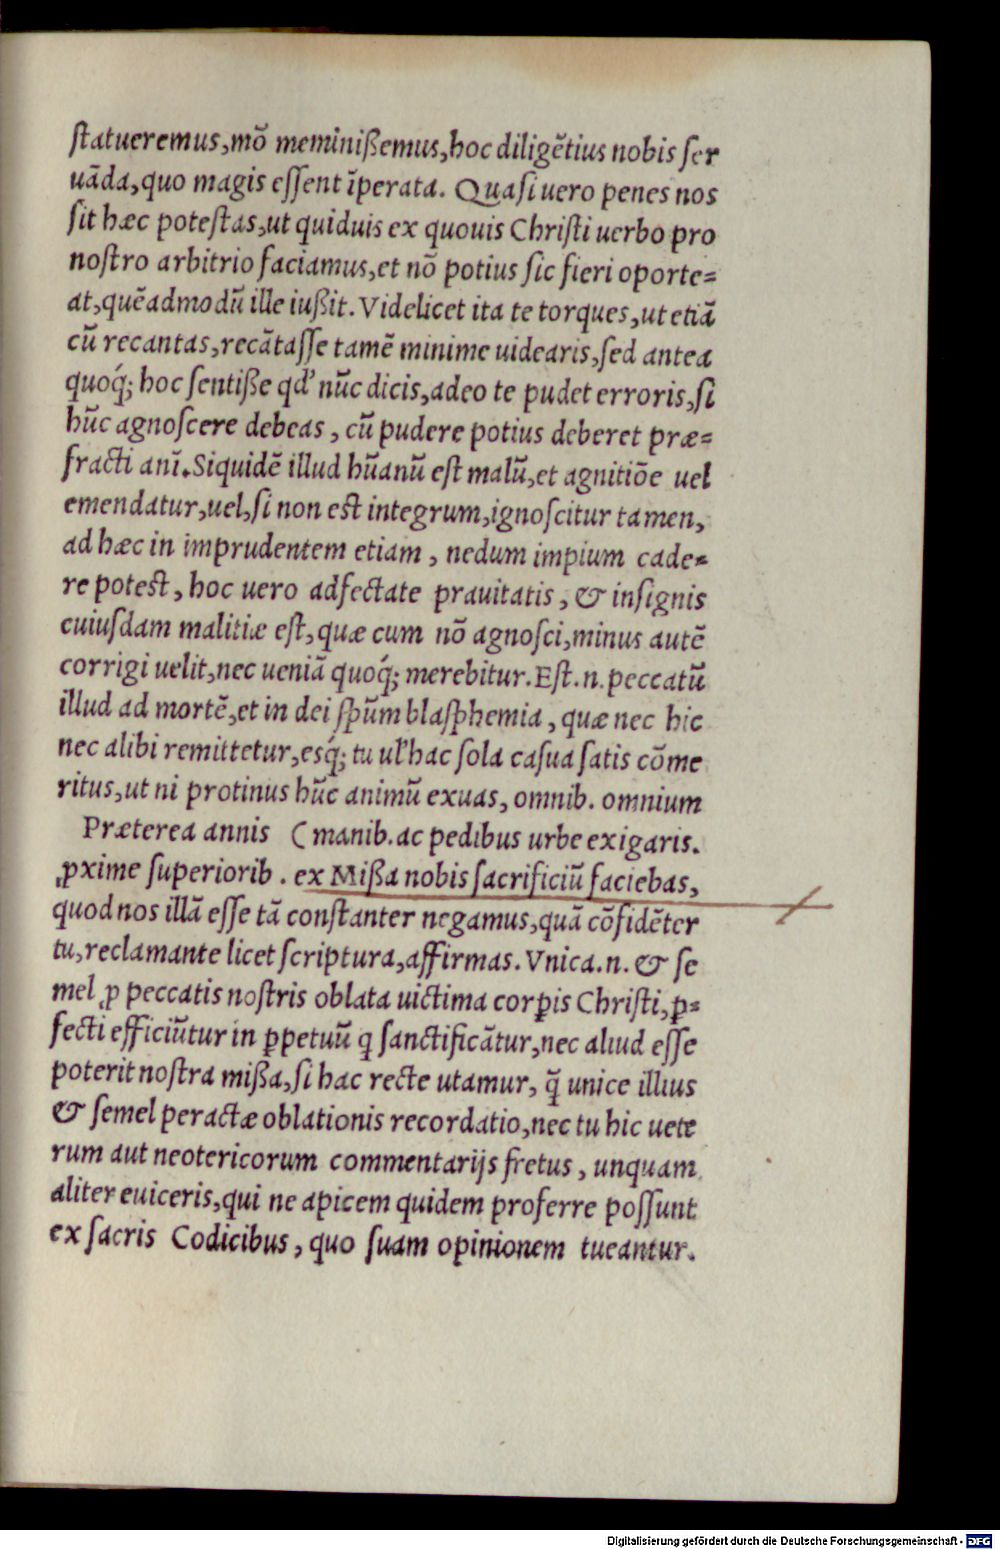 ſtatueremus,mõ meminißemus,hoc diligẽtius nobis ſer
uãda,quo magis eſſent ĩperata. Quaſi uero penes nos
ſit hæc poteſtas,ut quiduis ex quouis Chriſti uerbo pro
noſtro arbitrio faciamus,et nõ potius ſic fieri oporte=
at,quẽadmodũ ille iußit. Videlicet ita te torques,ut etiã
cũ recantas,recãtaſſe tamẽ minime uidearis,ſed antea
quoq́; hoc ſentiße qď nũc dicis,adeo te pudet erroris,ſi
hũc agnoſcere debeas, cũ pudere potius deberet præ=
fracti anĩ. Siquidẽ illud hũanũ eſt malũ,et agnitiõe uel
emendatur,uel,ſi non eſt integrum,ignoſcitur tamen,
ad hæc in imprudentem etiam, nedum impium cade=
re poteſt, hoc uero adfectate prauitatis, & inſignis
cuiuſdam malitiæ eſt,quæ cum nõ agnoſci,minus autẽ
corrigi uelit,nec ueniã quoq́; merebitur. Eſt. n. peccatũ
illud ad mortẽ,et in dei ſpũm blaſphemia, quæ nec hic
nec alibi remittetur,esq́; tu ul' hac ſola caſua ſatis cõme
ritus,ut ni protinus hũc animũ exuas, omnib. omnium
Præterea annis ( manib. ac pedibus urbe exigaris.
ꝓxime ſuperiorib. ex Mißa nobis ſacrificiũ faciebas,
quod nos illã eſſe tã conſtanter negamus,quã cõfidẽter
tu,reclamante licet ſcriptura,affirmas. Vnica. n. & ſe
mel ꝓ peccatis noſtris oblata uictima corꝑis Chriſti,ꝑ=
fecti efficiũtur in ꝑpetuũ q ſanctificãtur,nec aliud eſſe
poterit noſtra mißa,ſi hac recte utamur, q̃ unice illius
& ſemel peractæ oblationis recordatio,nec tu hic uete
rum aut neotericorum commentarijs fretus, unquam
aliter euiceris,qui ne apicem quidem proferre poſſunt
ex ſacris Codicibus, quo ſuam opinionem tueantur.
Digitalisierung gefördert durch die Deutsche Forschungsgemeinschaft - DFG